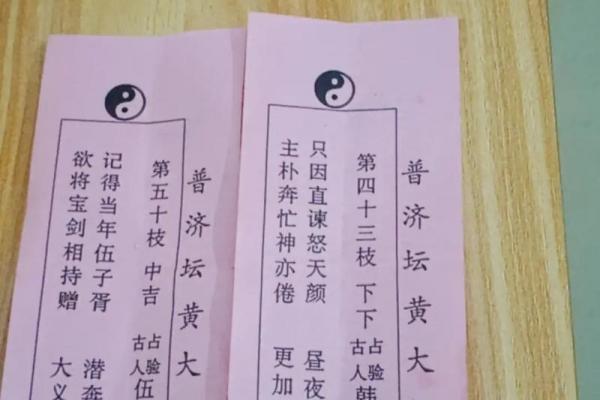 普济坛黄大
第五十枝 中吉 古人占验 伍
记得当年伍子胥 潜奔
欲将宝剑相持赠 大义
普济坛黄大
第四十三枝 下下 古人占验 韩
只因直谏怒天颜 昼夜
主朴奔忙神亦倦 更加